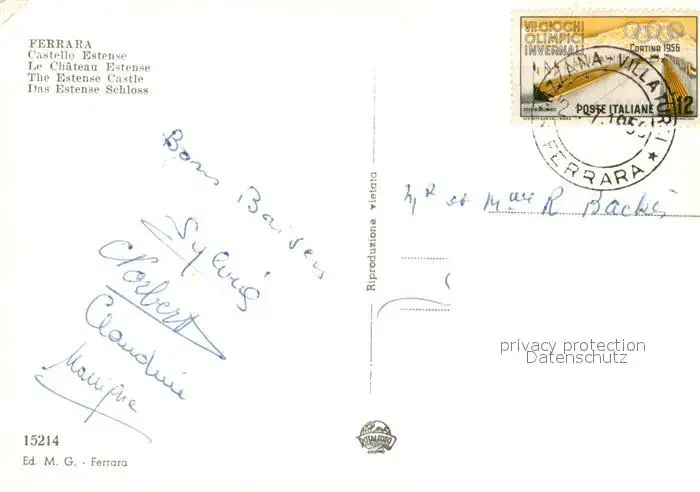 FERRARA
Castello Estense
Le Château Estense
The Estense Castle
Das Estense Schloss
VII GIOCHI
OLIMPICI
INVERNALI
CORTINA 1956
POSTE ITALIANE
12
1956
FERRARA
Bons Baisers
Sylvie
Norbert
Claudine
Monique
Mr et Mme R
Riproduzione vietata
privacy protection
Datenschutz
15214
Ed. M. G. - Ferrara